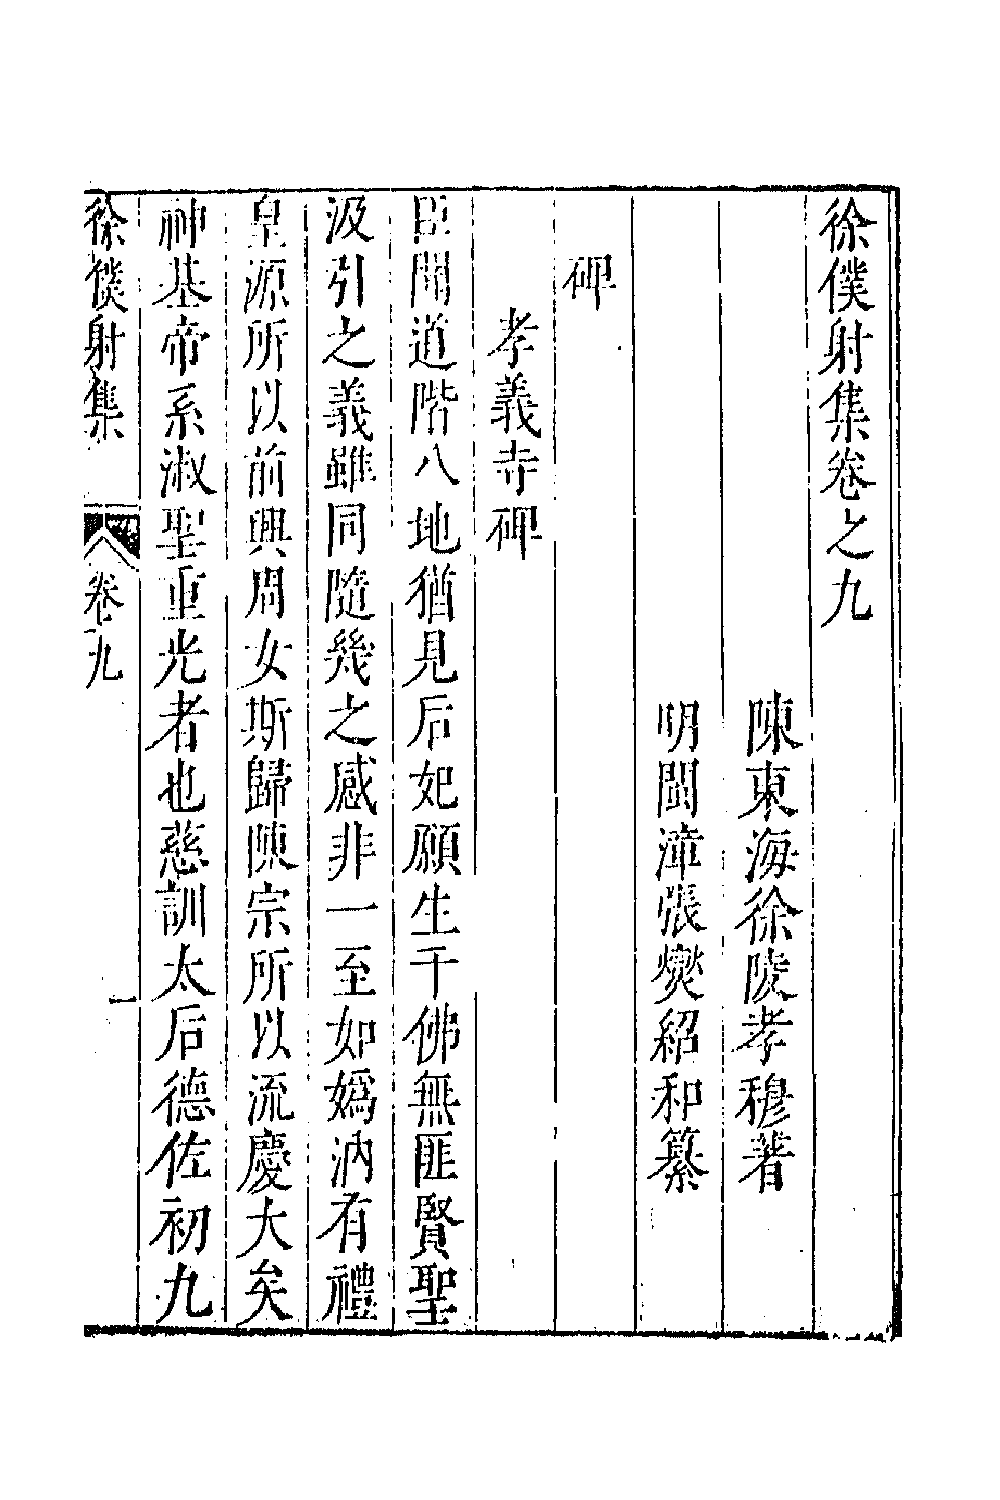 徐僕射集卷之九
陳東海徐陵孝穆著
明閩漳張爕紹和纂
碑
孝義寺碑
臣聞道階八地猶見后妃願生千佛無匪賢聖
汲引之義雖同隨幾之感非一至如嬀汭有禮
皇源所以前興周女斯歸陳宗所以流慶大矣
神基帝系淑聖重光者也慈訓太后德佐初九
徐僕射集
卷九
一